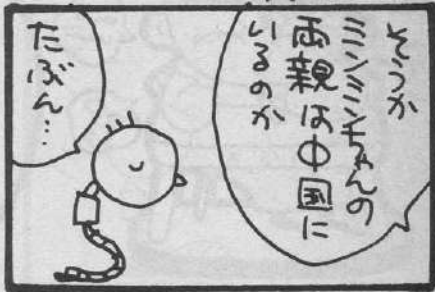 そうか
ミンミンちゃんの
両親は中国に
いるのか
たぶん…